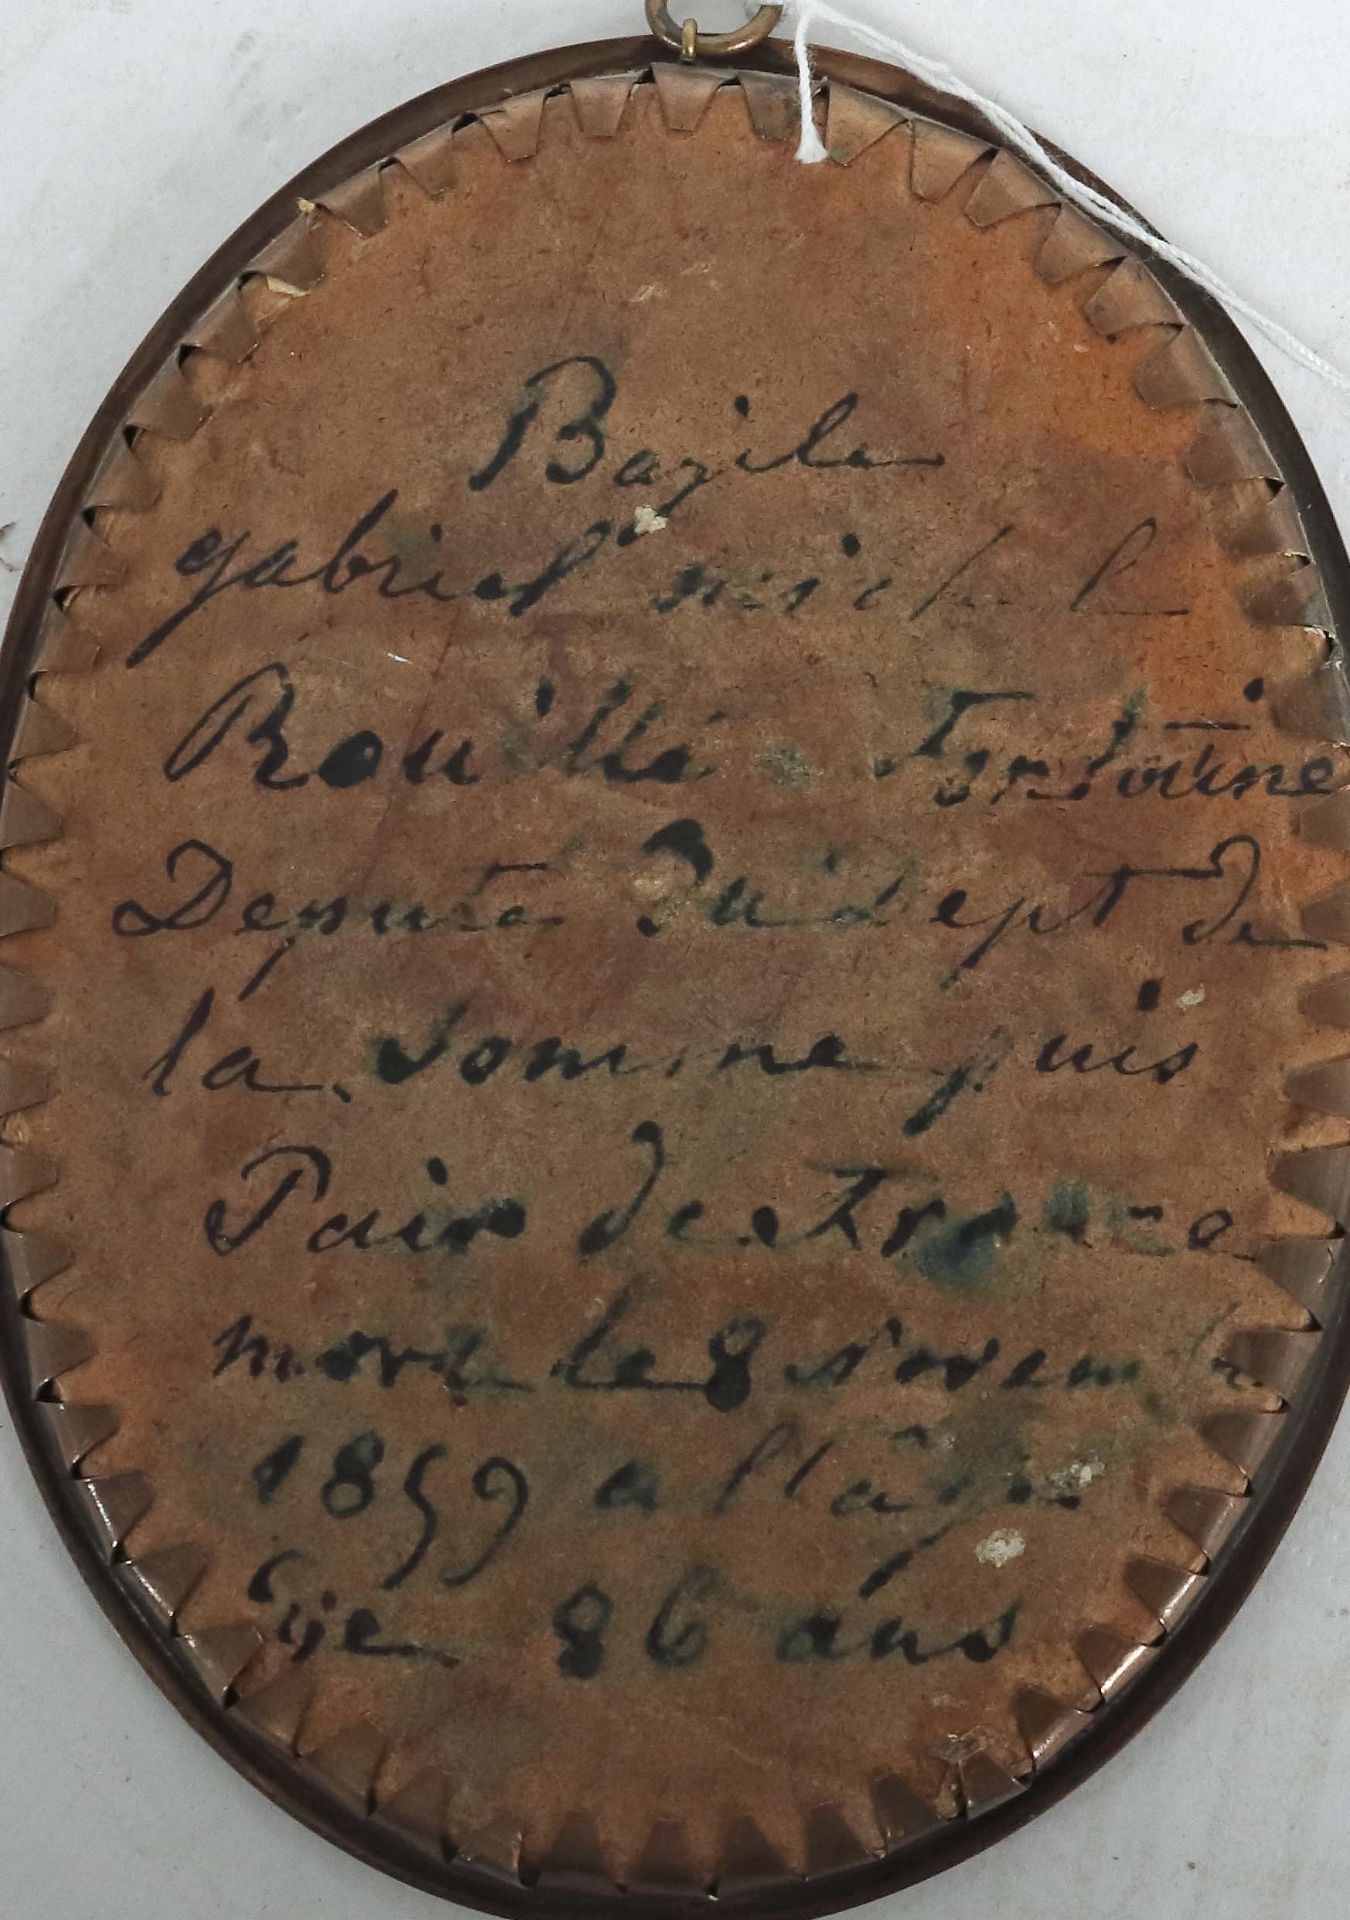 Bazile
gabriel michel
Rouillé Fontaine
Deputé du dept de
la Somme puis
Pair de France
mort le 8 Novembre
1859 a l'âge
de 86 ans